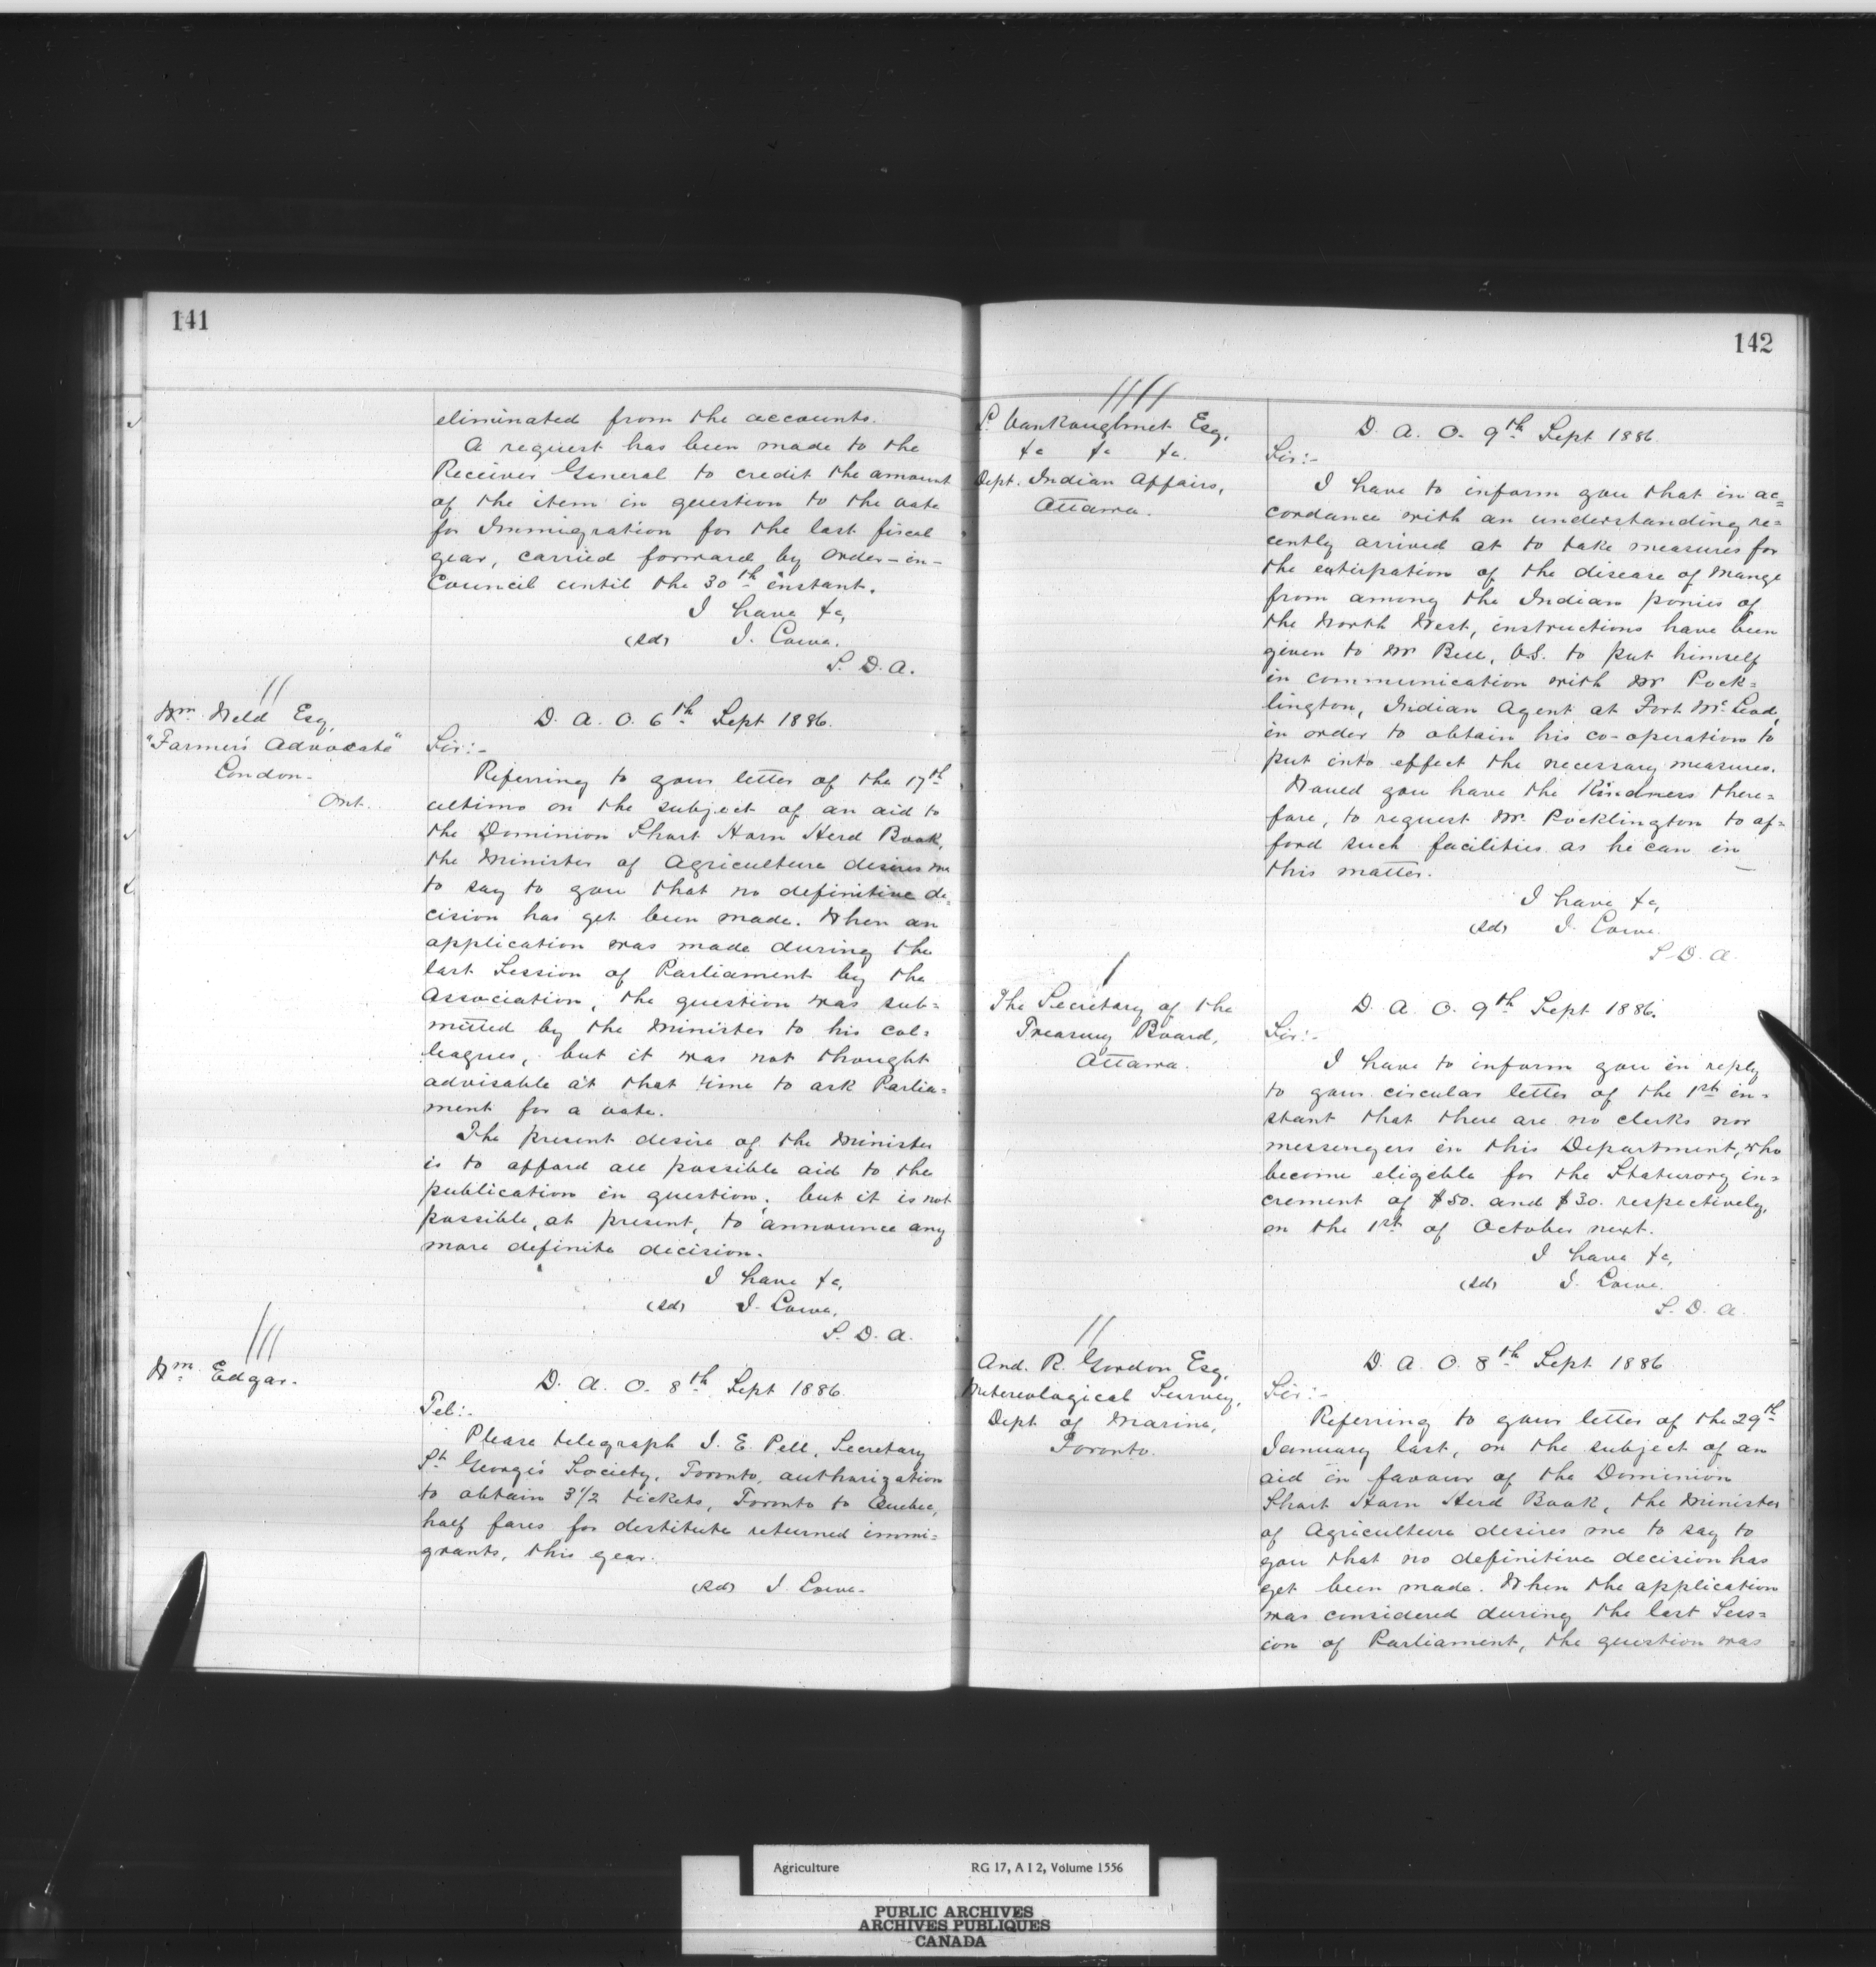 141
eliminated from the accounts.
A request has been made to the
Receiver General to credit the amount
of the item in question to the vote
for Immigration for the last fiscal
year, carried forward by Order-in-
Council until the 30th instant.
I have &c,
(sd) J. Lowe.
S. D. A.
//
Wm Weld Esq,
"Farmer's Advocate"
London.
Ont.
D. A. O. 6th Sept 1886.
Sir:-
Referring to your letter of the 17th
ultimo on the subject of an aid to
the Dominion Short Horn Herd Book,
the Minister of Agriculture desires me
to say to you that no definitive de=
cision has yet been made. When an
application was made during the
last Session of Parliament by the
Association, the question was sub=
mitted by the Minister to his col=
leagues, but it was not thought
advisable at that time to ask Parlia=
ment for a vote.
The present desire of the Minister
is to afford all possible aid to the
publication in question, but it is not
possible, at present, to announce any
more definite decision.
I have &c,
(sd) J. Lowe.
S. D. A.
///
Wm Edgar.
D. A. O. 8th Sept 1886.
Tel:-
Please telegraph J. E. Pell, Secretary
St George's Society, Toronto, authorization
to obtain 3 1/2 tickets, Toronto to Quebec,
half fares for destitute returned immi=
grants, this year.
(sd) J. Lowe.
142
////
L. Vankoughnet Esq,
&c &c &c.
Dept. Indian Affairs,
Ottawa.
D. A. O. 9th Sept 1886.
Sir:-
I have to inform you that in ac=
cordance with an understanding re=
cently arrived at to take measures for
the extirpation of the disease of Mange
from among the Indian ponies of
the North West, instructions have been
given to Mr Bell, V.S. to put himself
in communication with Mr Pock=
lington, Indian Agent at Fort McLeod,
in order to obtain his co-operation to
put into effect the necessary measures.
Would you have the Kindness there=
fore, to request Mr. Pocklington to af=
ford such facilities as he can in
this matter.
I have &c,
(sd) J. Lowe.
S. D. A.
/
The Secretary of the
Treasury Board,
Ottawa.
D. A. O. 9th Sept 1886.
Sir:-
I have to inform you in reply
to your circular letter of the 1st in=
stant that there are no clerks nor
messengers in this Department, who
become eligible for the Staturory in=
crement of $50. and $30. respectively,
on the 1st of October next.
I have &c,
(sd) J. Lowe.
S. D. A.
//
And. R. Gordon Esq,
Metereological Survey,
Dept of Marine,
Toronto.
D. A. O. 8th Sept 1886
Sir:-
Referring to your letter of the 29th
January last, on the subject of an
aid in favour of the Dominion
Short Horn Herd Book, the Minister
of Agriculture desires me to say to
you that no definitive decision has
yet been made. When the application
was considered during the last Sess=
ion of Parliament, the question was
Agriculture RG 17, A I 2, Volume 1556
PUBLIC ARCHIVES
ARCHIVES PUBLIQUES
CANADA